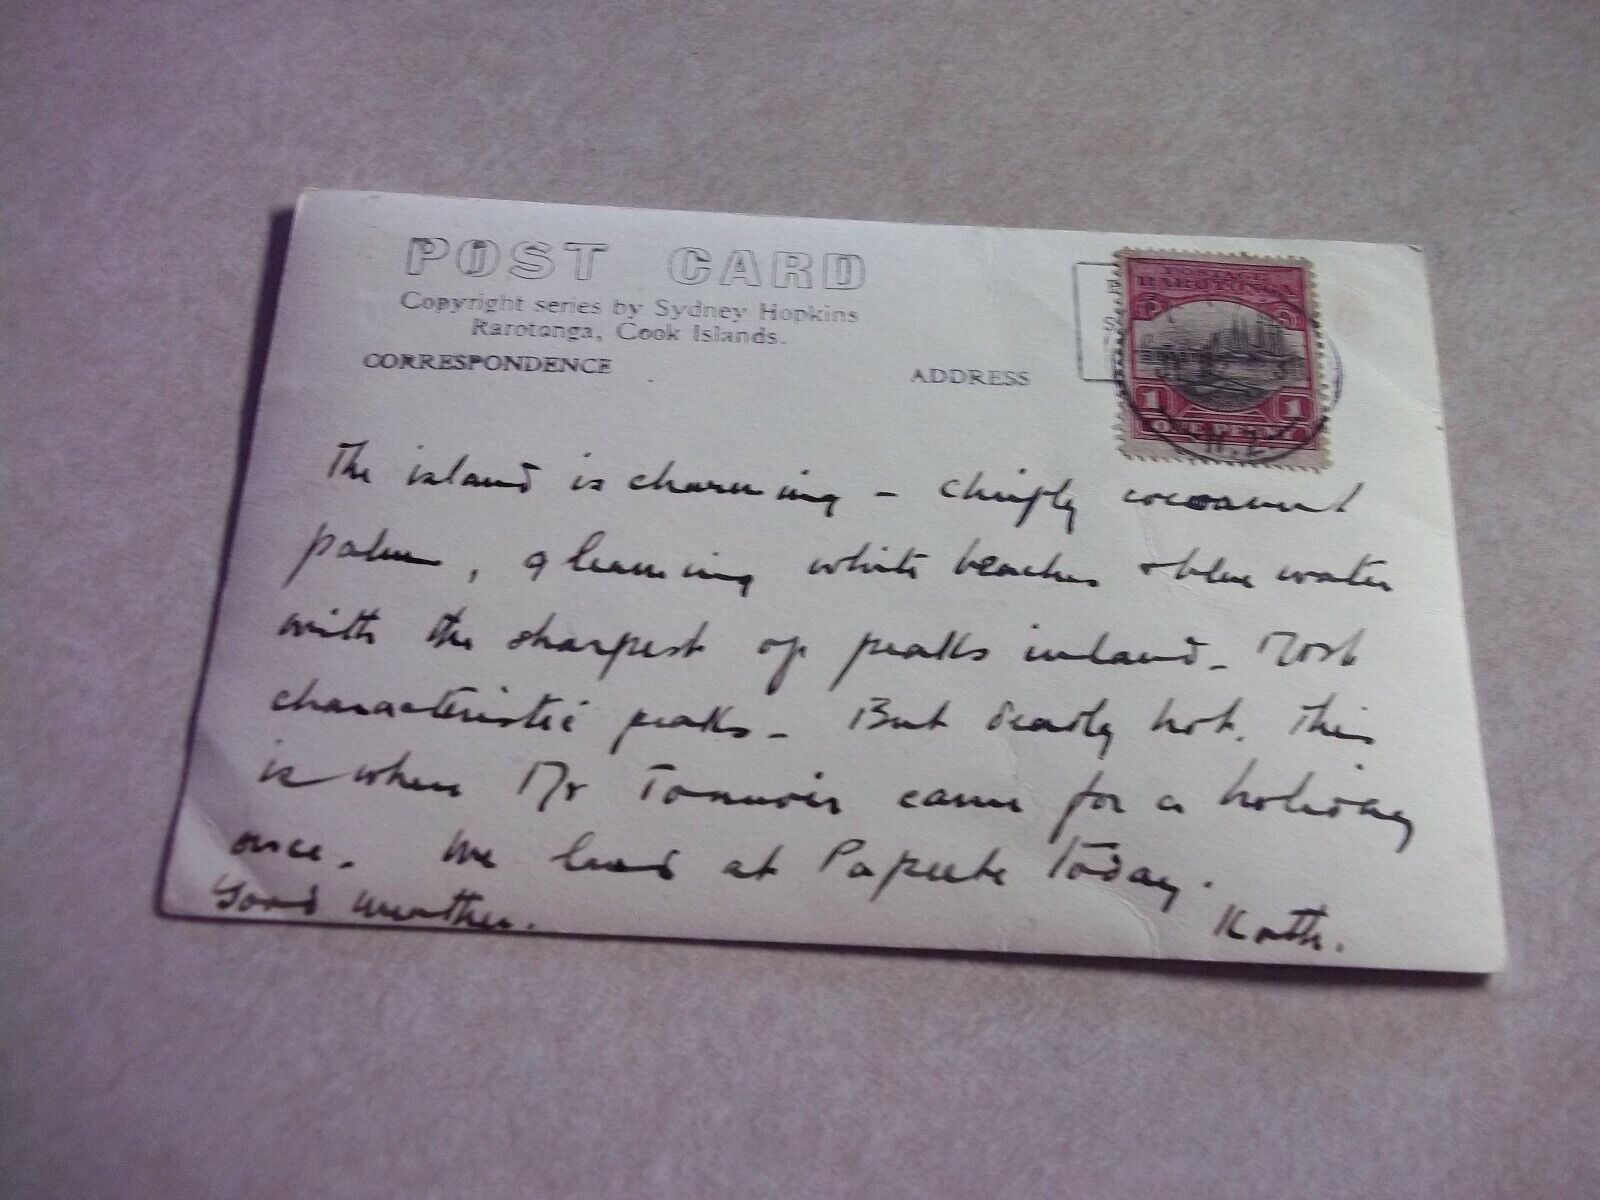 POST CARD
Copyright series by Sydney Hopkins
Rarotonga, Cook Islands.
CORRESPONDENCE
ADDRESS
POSTAGE
RAROTONGA
1 1
ONE PENNY
N.Z
The island is charming - chiefly cocoanut
palms, gleaming white beaches & blue water
with the sharpest of peaks inland. Most
characteristic peaks - But deadly hot. This
is where Mr came for a holiday
once. We land at Papeete today.
Good weather.
Kath.